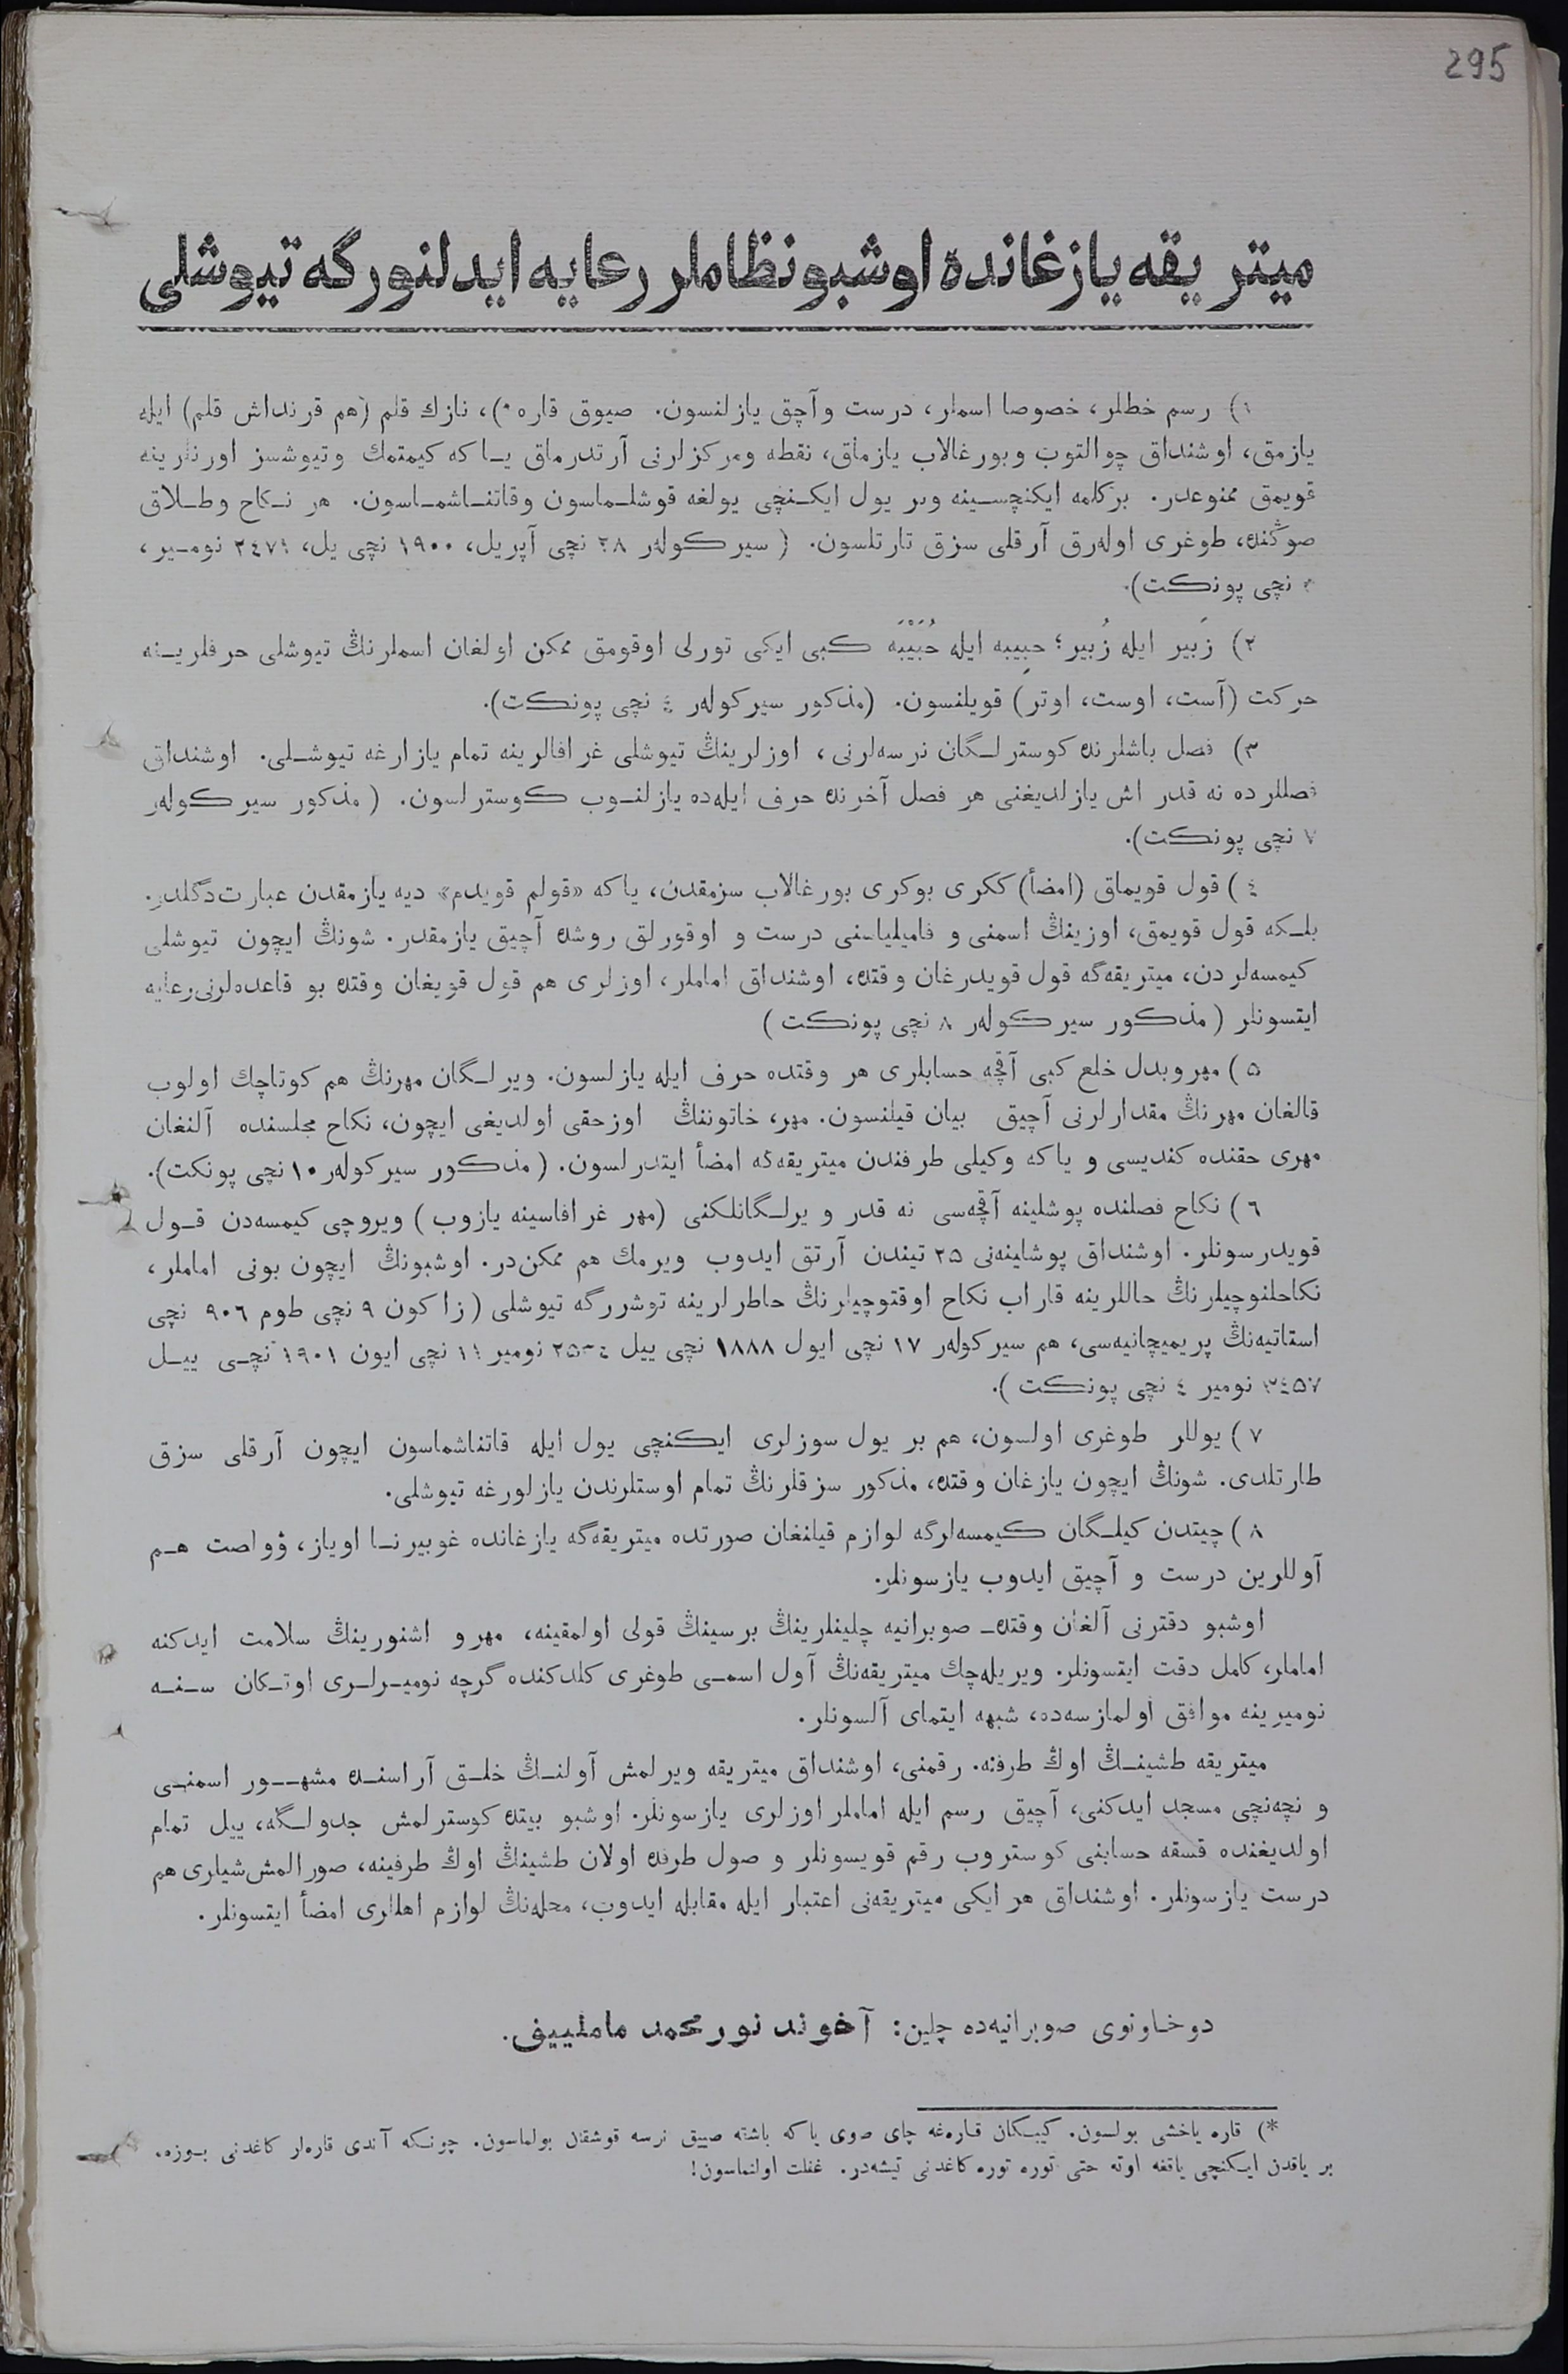 295
ميتريقه يازغانده اوشبو نظاملر رعايه ايدلنورگه تيوشلى
١) رسم خطلر، خصوصا اسملر، درست وآچق يازلنسون. صيوق قاره*)، نازك قلم (هم قرنداش قلم) ايله
يازمق، اوشنداق چوالتوب وبورغالاب يازماق، نقطه ومركزلرنى آرتدرماق يـا كه كيمتمك وتيوشسز اورنلرينه
قويمق ممنوعدر. بركلمه ايكنچسـينه وبر يول ايكـنچى يولغه قوشلـماسون وقاتنـاشمـاسون. هر نـكاح وطـلاق
صوڭنده، طوغرى اولەرق آرقلى سزق تارتلسون. (سيركولەر ٢٨ نچى آپريل، ١٩٠٠ نچى يل، ٢٤٧٩ نومـير،
نچى پونكت).
٢) زَبير ايله زُبير؛ حبِيبه ايله حُبَيْبَه كبى ايكى تورلى اوقومق ممكن اولغان اسملرنڭ تيوشلى حرفلريـنه
حركت (آست، اوست، اوتر) قويلنسون. (مذكور سيركولەر ٤ نچى پونكت).
٣) فصل باشلرنده كوسترلـگان نرسەلرنى، اوزلرينڭ تيوشلى غرافالرينه تمام يازارغه تيوشـلى. اوشنداق
فصللرده نه قدر اش يازلديغنى هر فصل آخرنده حرف ايلەده يازلنـوب كوسترلسون. (مذكور سيركولەر
٧ نچى پونكت).
٤) قول قويماق (امضأ) ككرى بوكرى بورغالاب سزمقدن، ياكه «قولم قويدم» ديه يازمقدن عبارت دگلدر.
بلـكه قول قويمق، اوزينڭ اسمنى و فاميلياسنى درست و اوقورلق روشده آچيق يازمقدر. شونڭ ايچون تيوشلى
كيمسەلردن، ميتريقەگه قول قويدرغان وقتده، اوشنداق اماملر، اوزلرى هم قول قويغان وقتده بو قاعدەلرنى رعايه
ايتسونلر (مذكور سيركولەر ٨ نچى پونكت)
٥) مهروبدل خلع كبى آقچه حسابلرى هر وقتده حرف ايله يازلسون. ويرلـگان مهرنڭ هم كوتاچك اولوب
قالغان مهرنڭ مقدارلرنى آچيق بيان قيلنسون. مهر، خاتوننڭ اوزحقى اولديغى ايچون، نكاح مجلسنده آلنغان
مهرى حقنده كنديسى و ياكه وكيلى طرفندن ميتريقەگه امضأ ايتدرلسون. (مذكور سيركولەر ١٠ نچى پونكت).
٦) نكاح فصلنده پوشلينه آقچەسى نه قدر ويرلـگانلكنى (مهر غرافاسينه يازوب) ويروچى كيمسەدن قـول
قويدرسونلر. اوشنداق پوشلينەنى ٢٥ تيندن آرتق ايدوب ويرمك هم ممكن در. اوشبونڭ ايچون بونى اماملر،
نكاحلنوچيلرنڭ حاللرينه قاراب نكاح اوقتوچيلرنڭ خاطرلرينه توشررگه تيوشلى (زاكون ٩ نچى طوم ٩٠٦ نچى
استاتيەنڭ پريميچانيەسى، هم سيركولەر ١٧ نچى ايول ١٨٨٨ نچى ييل نومير ١١ نچى ايون ١٩٠١ نچـى ييـل
٣٤٥٧ نومير ٤ نچى پونكت).
٧) يوللر طوغرى اولسون، هم بر يول سوزلرى ايكنچى يول ايله قاتناشماسون ايچون آرقلى سزق
طارتلدى. شونڭ ايچون يازغان وقتده، مذكور سزقلرنڭ تمام اوستلرندن يازلورغه تيوشلى.
٨) چيتدن كيلـگان كيمسەلرگه لوازم قيلنغان صورتده ميتريقەگه يازغانده غوبيرنـا اوياز، ۋولصت هـم
آوللرين درست و آچيق ايدوب يازسونلر.
اوشبو دفترنى آلغان وقتده صوبرانيه چلينلرينڭ برسينڭ قولى اولمقينه، مهرو اشنورينڭ سلامت ايدكنه
اماملر، كامل دقت ايتسونلر. ويريلەچك ميتريقەنڭ آول اسمـى طوغرى كلدكنده گرچه نوميـرلـرى اوتـكان سـنـه
نوميرينه موافق اولمازسەده، شبهه ايتماى آلسونلر.
ميتريقه طشينـڭ اوڭ طرفنه. رقمنى، اوشنداق ميتريقه ويرلمش آولنـڭ خلـق آراسنـده مشهــور اسمنـى
و نچەنچى مسجد ايدكنى، آچيق رسم ايله اماملر اوزلرى يازسونلر. اوشبو بيتده كوسترلمش جدولـگه، ييل تمام
اولديغنده قسقه حسابنى كوستروب رقم قويسونلر و صول طرفده اولان طشينڭ اوڭ طرفينه، صورالمش شيلرى هم
درست يازسونلر. اوشنداق هر ايكى ميتريقەنى اعتبار ايله مقابله ايدوب، محلەنڭ لوازم اهللرى امضأ ايتسونلر.
دوخاونوى صوبرانيەده چلين: آخوند نورمحمد ماملييف.
*) قاره ياخشى بولسون. كيبـكان قـارەغه چاى صوى ياكه باشته صيق نرسه قوشقان بولماسون. چونـكه آندى قارەلر كاغدنى بـوزه.
بر ياقدن ايـكنچى ياقغه اوته حتى توره توره كاغدنى تيشەدر. غفلت اولنماسون!